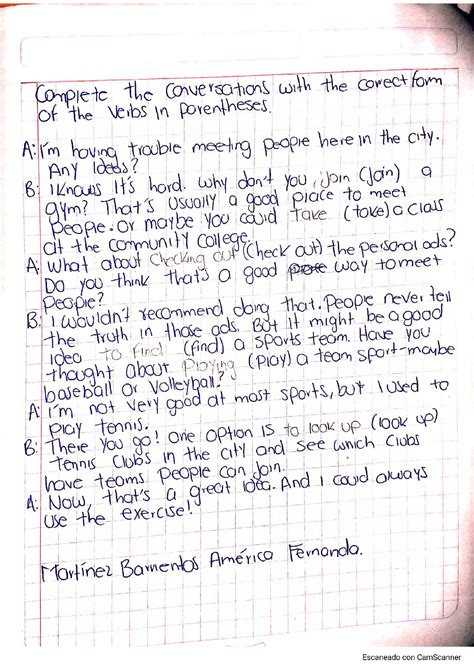 Complete the conversations with the correct form
of the verbs in parentheses.
A: I'm having trouble meeting people here in the city.
Any Ideas?
B: I knows It's hard. why don't you join (Join) a
gym? That's usually a good place to meet
People. or maybe you could take (take) a class
at the community college.
A: What about checking out (check out) the personal ads?
Do you think that's a good way to meet
People?
B: I wouldn't recommend doing that. People never tell
the truth in those ads. But it might be a good
idea to find (find) a sports team. Have you
thought about Playing (play) a team sport-maybe
baseball or volleyball?
A: I'm not very good at most sports, but I used to
Play tennis.
B: There you go! One option Is to look up (look up)
Tennis Clubs in the city and see which clubs
have teams People can Join.
A: Now, that's a great idea. And I could always
use the exercise!
Martínez Barrientos América Fernanda.
Escaneado con CamScanner